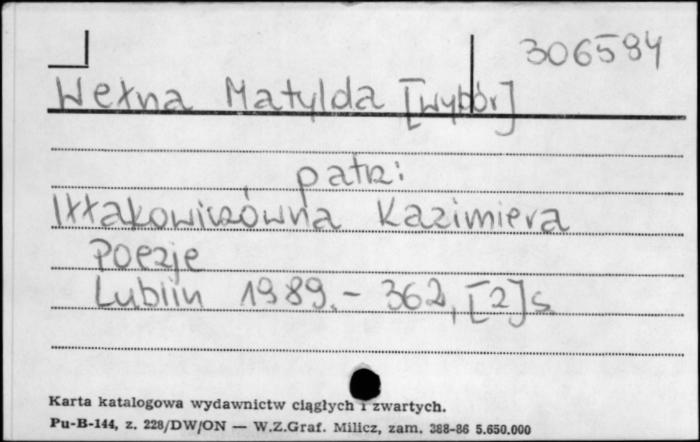 306594
Wełna Matylda [Wybór]
patrz:
Iłłakowiczówna Kazimiera
Poezje
Lublin 1989.- 362, [2] s
Karta katalogowa wydawnictw ciągłych i zwartych.
Pu-B-144, z. 228/DW/ON — W.Z.Graf. Milicz, zam. 388-86 5.650.000